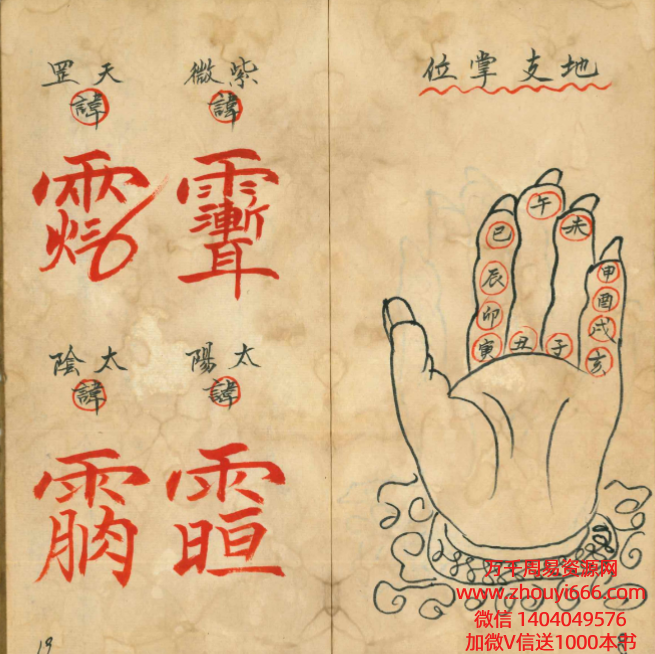 地支掌位
午
巳
未
辰
甲
酉
卯
戌
寅
丑
子
亥
紫微
諱
天罡
諱
太陽
諱
太陰
諱
19
万千周易资源网
www.zhouyi666.com
微信 1404049576
加微V信送1000本书